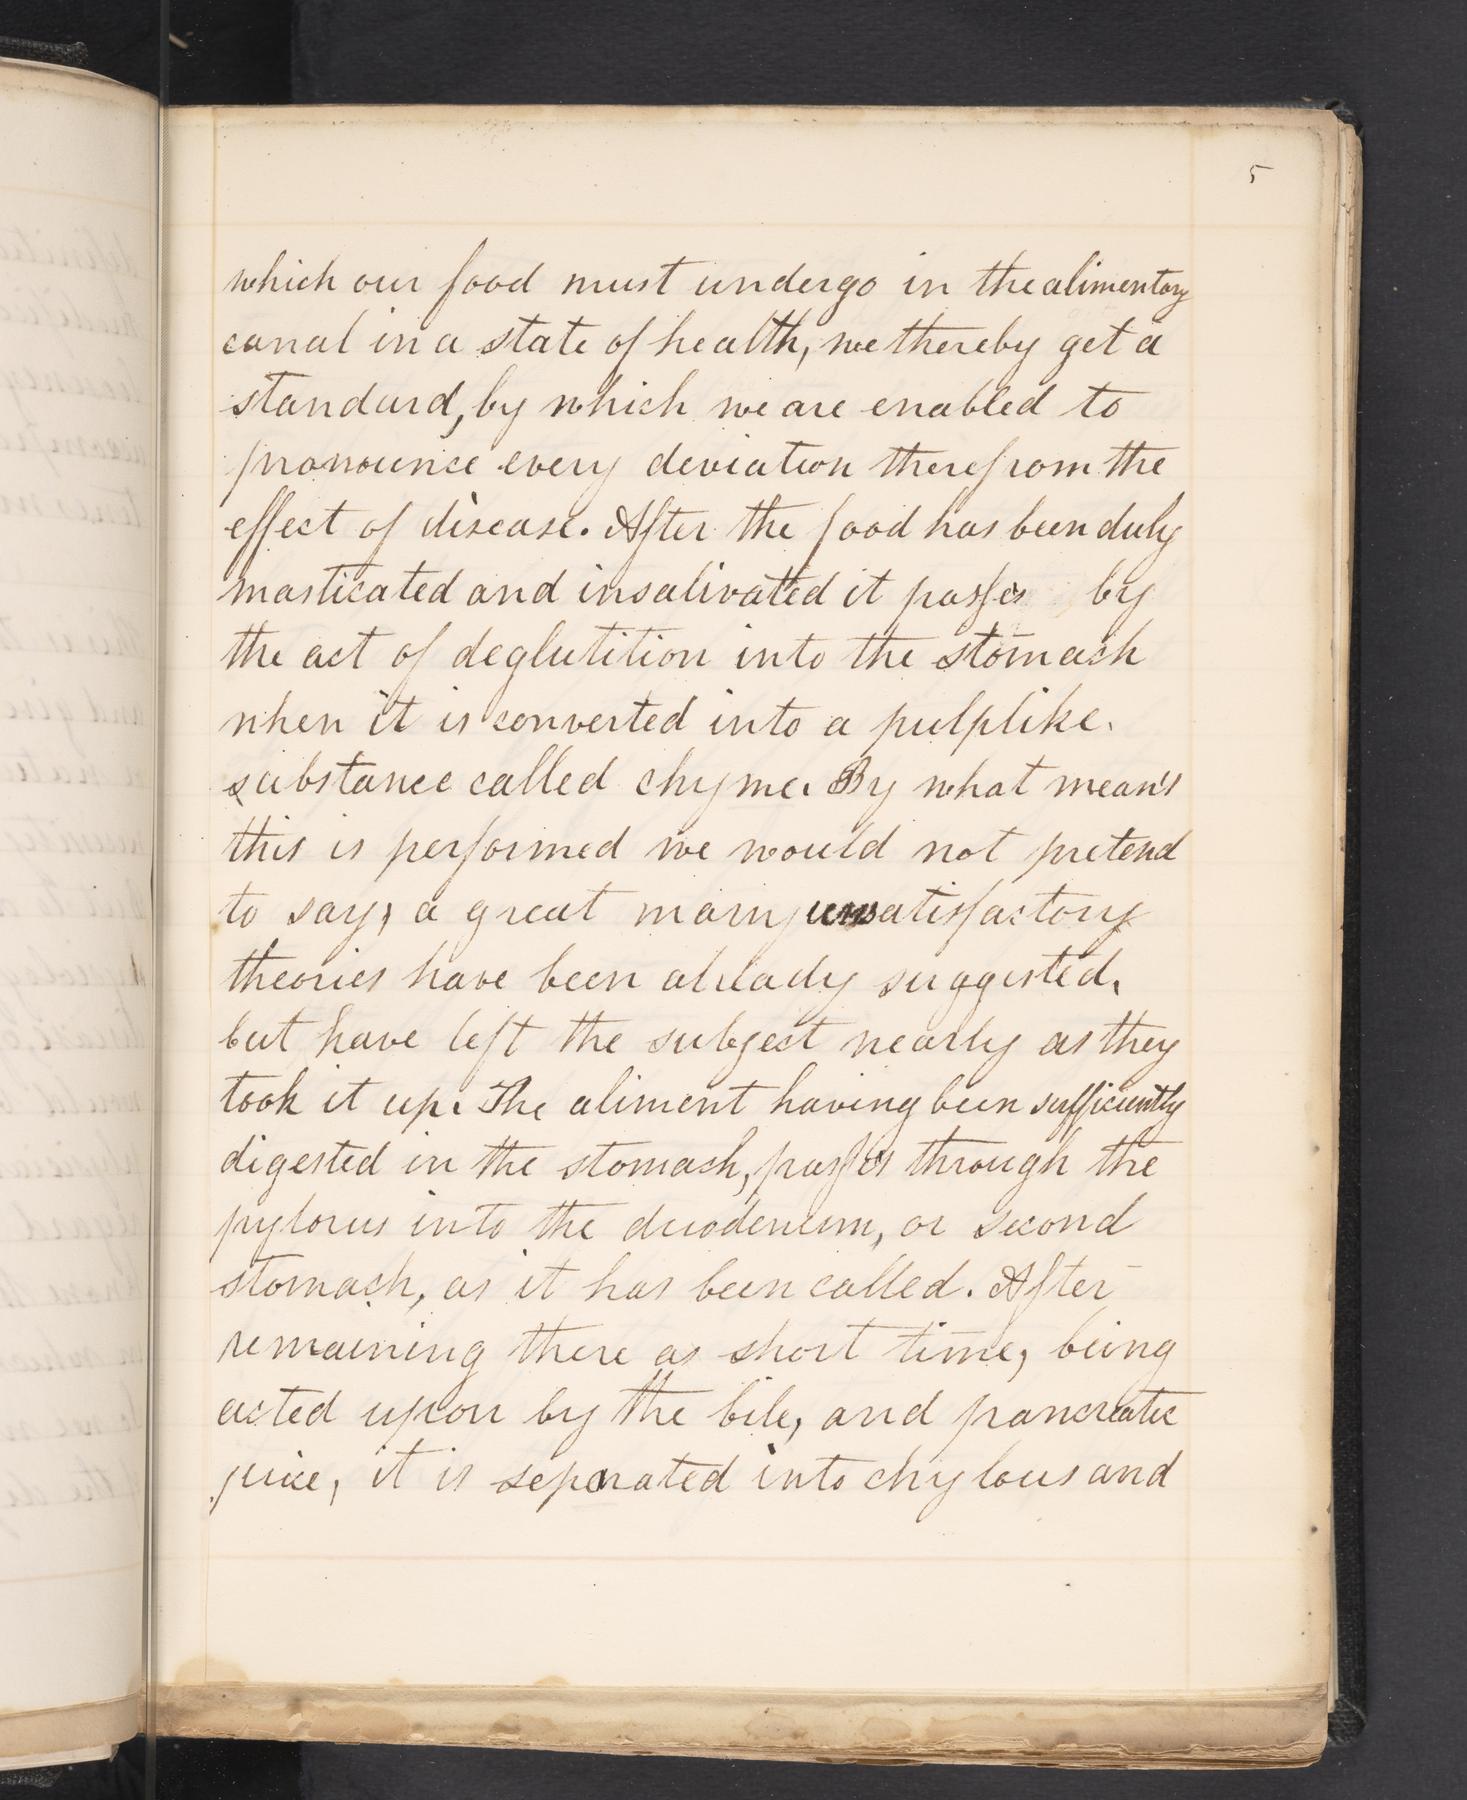 5
which our food must undergo in the alimentory
canal in a state of health, we thereby get a
standard, by which we are enabled to
pronounce every deviation therefrom the
effect of disease. After the food has been duly
masticated and insalivated it passes by
the act of deglutition into the stomach
when it is converted into a pulplike.
substance called chyme. By what mean's
this is performed we would not pretend
to say, a great many unsatisfactory
theories have been already suggested,
but have left the subject nearly as they
took it up. The aliment having been sufficiently
digested in the stomach, passes through the
pylorus into the duodenum, or second
stomach, as it has been called. After
remaining there as short time, being
acted upon by the bile, and pancreatic
juice, it is separated into chylous and